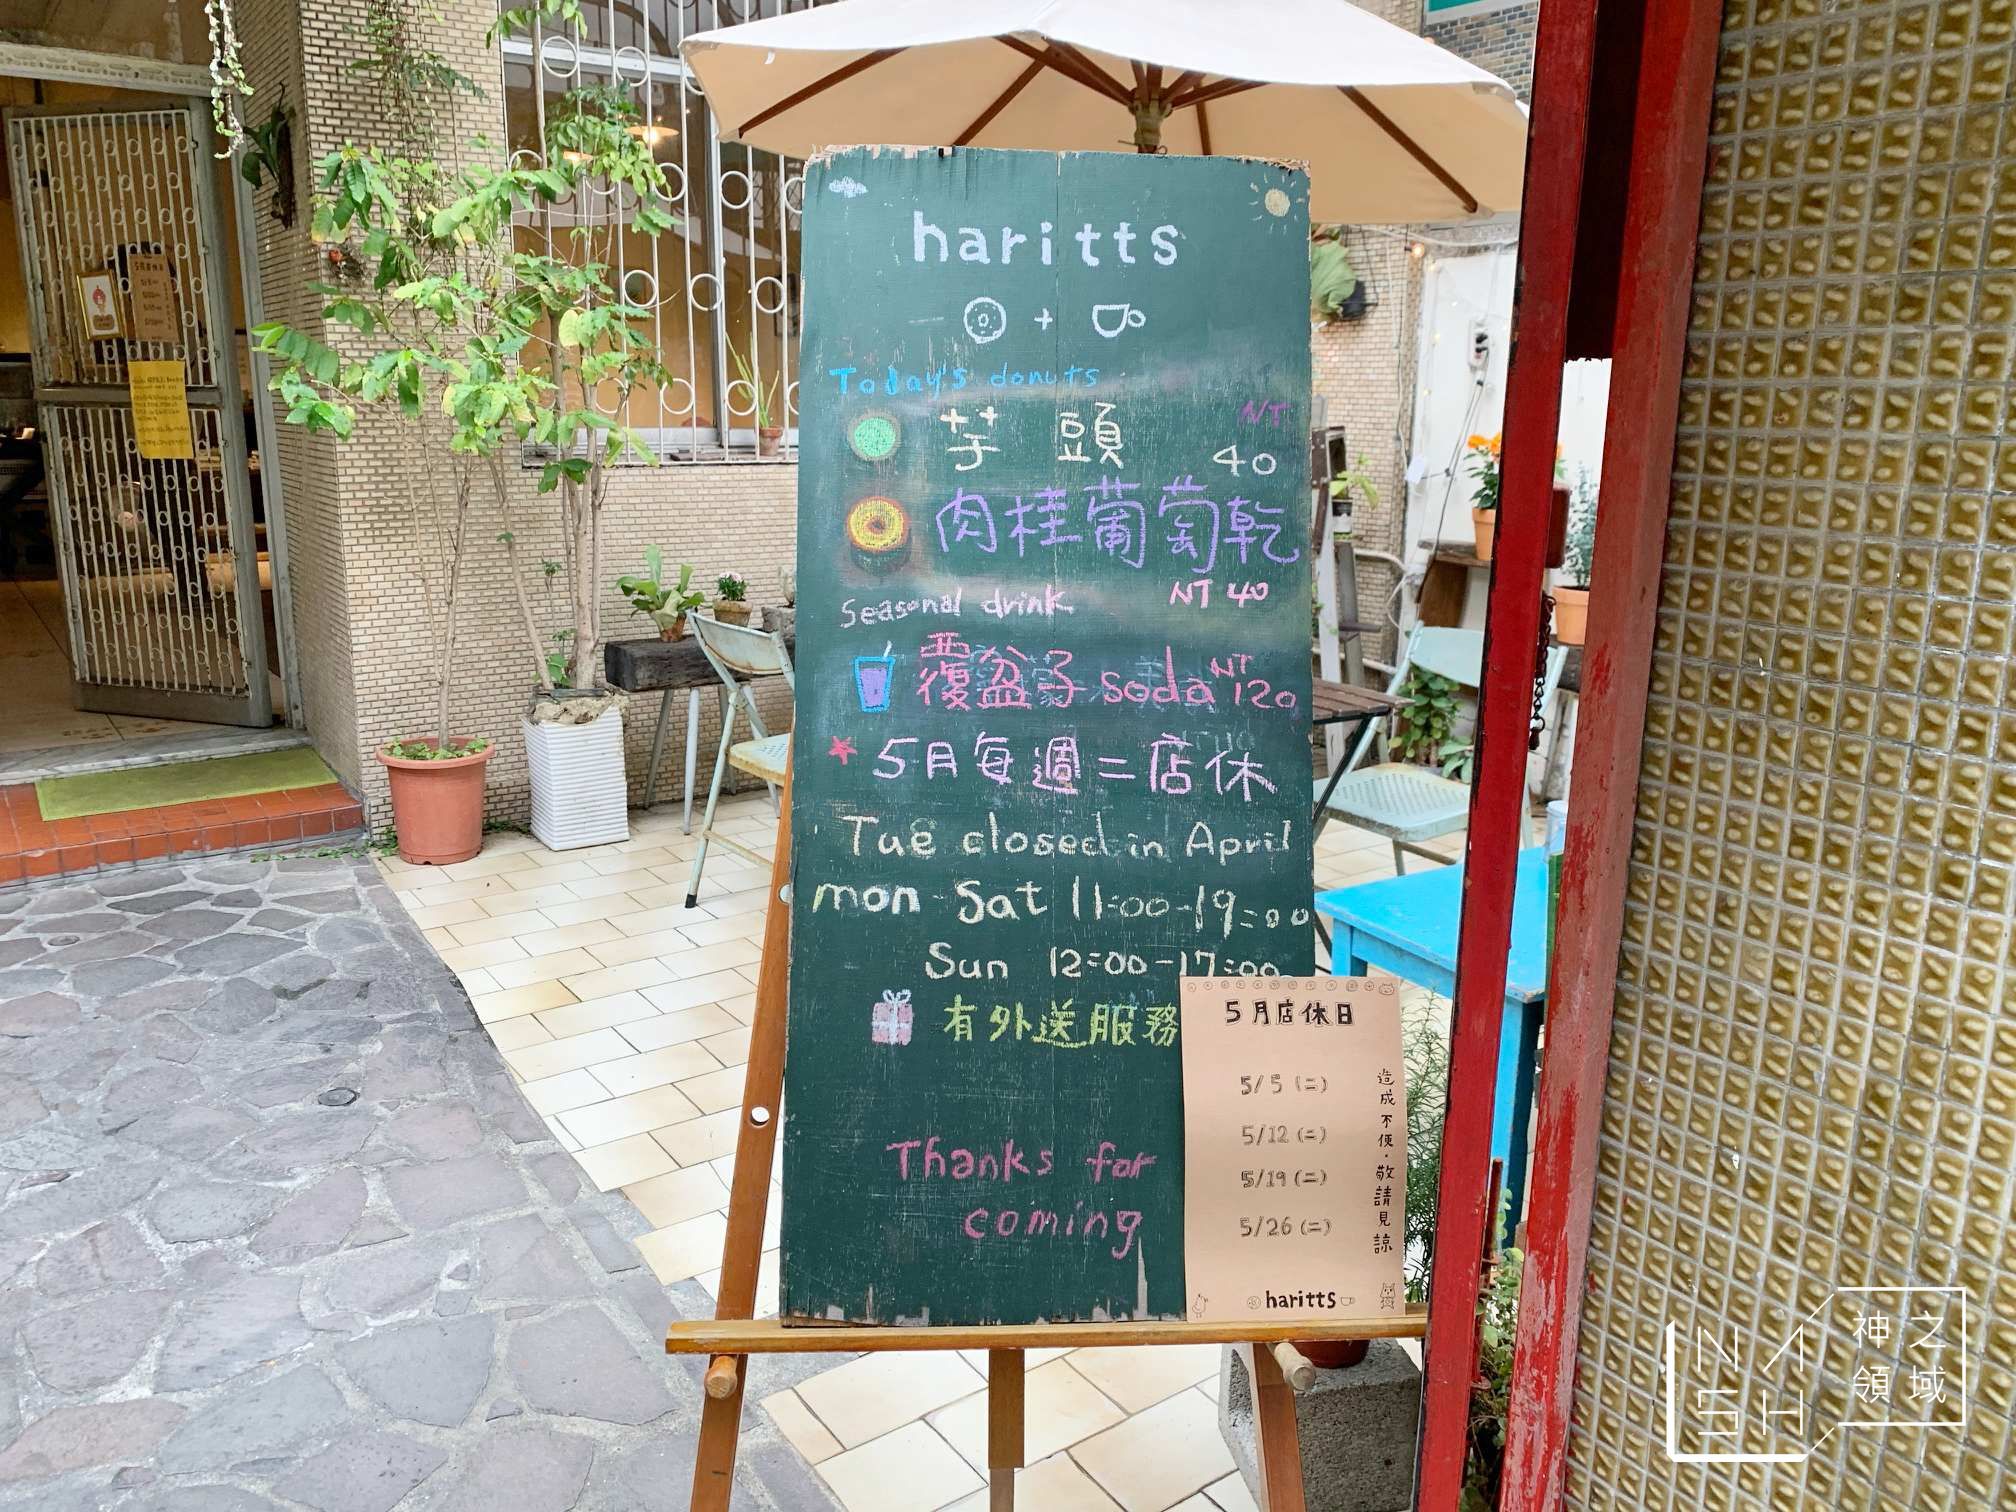 haritts
+
Today's donuts
芋頭 NT 40
肉桂葡萄乾
NT 40
Seasonal drink
覆盆子 soda NT 120
5月每週二店休
Tue closed in April
mon - Sat 11:00-19:00
Sun 12:00-17:00
有外送服務
Thanks for
coming
5月店休日
5/5 (二)
5/12 (二)
5/19 (二)
5/26 (二)
造成不便，敬請見諒
haritts
5月店休日
NASH
神之領域